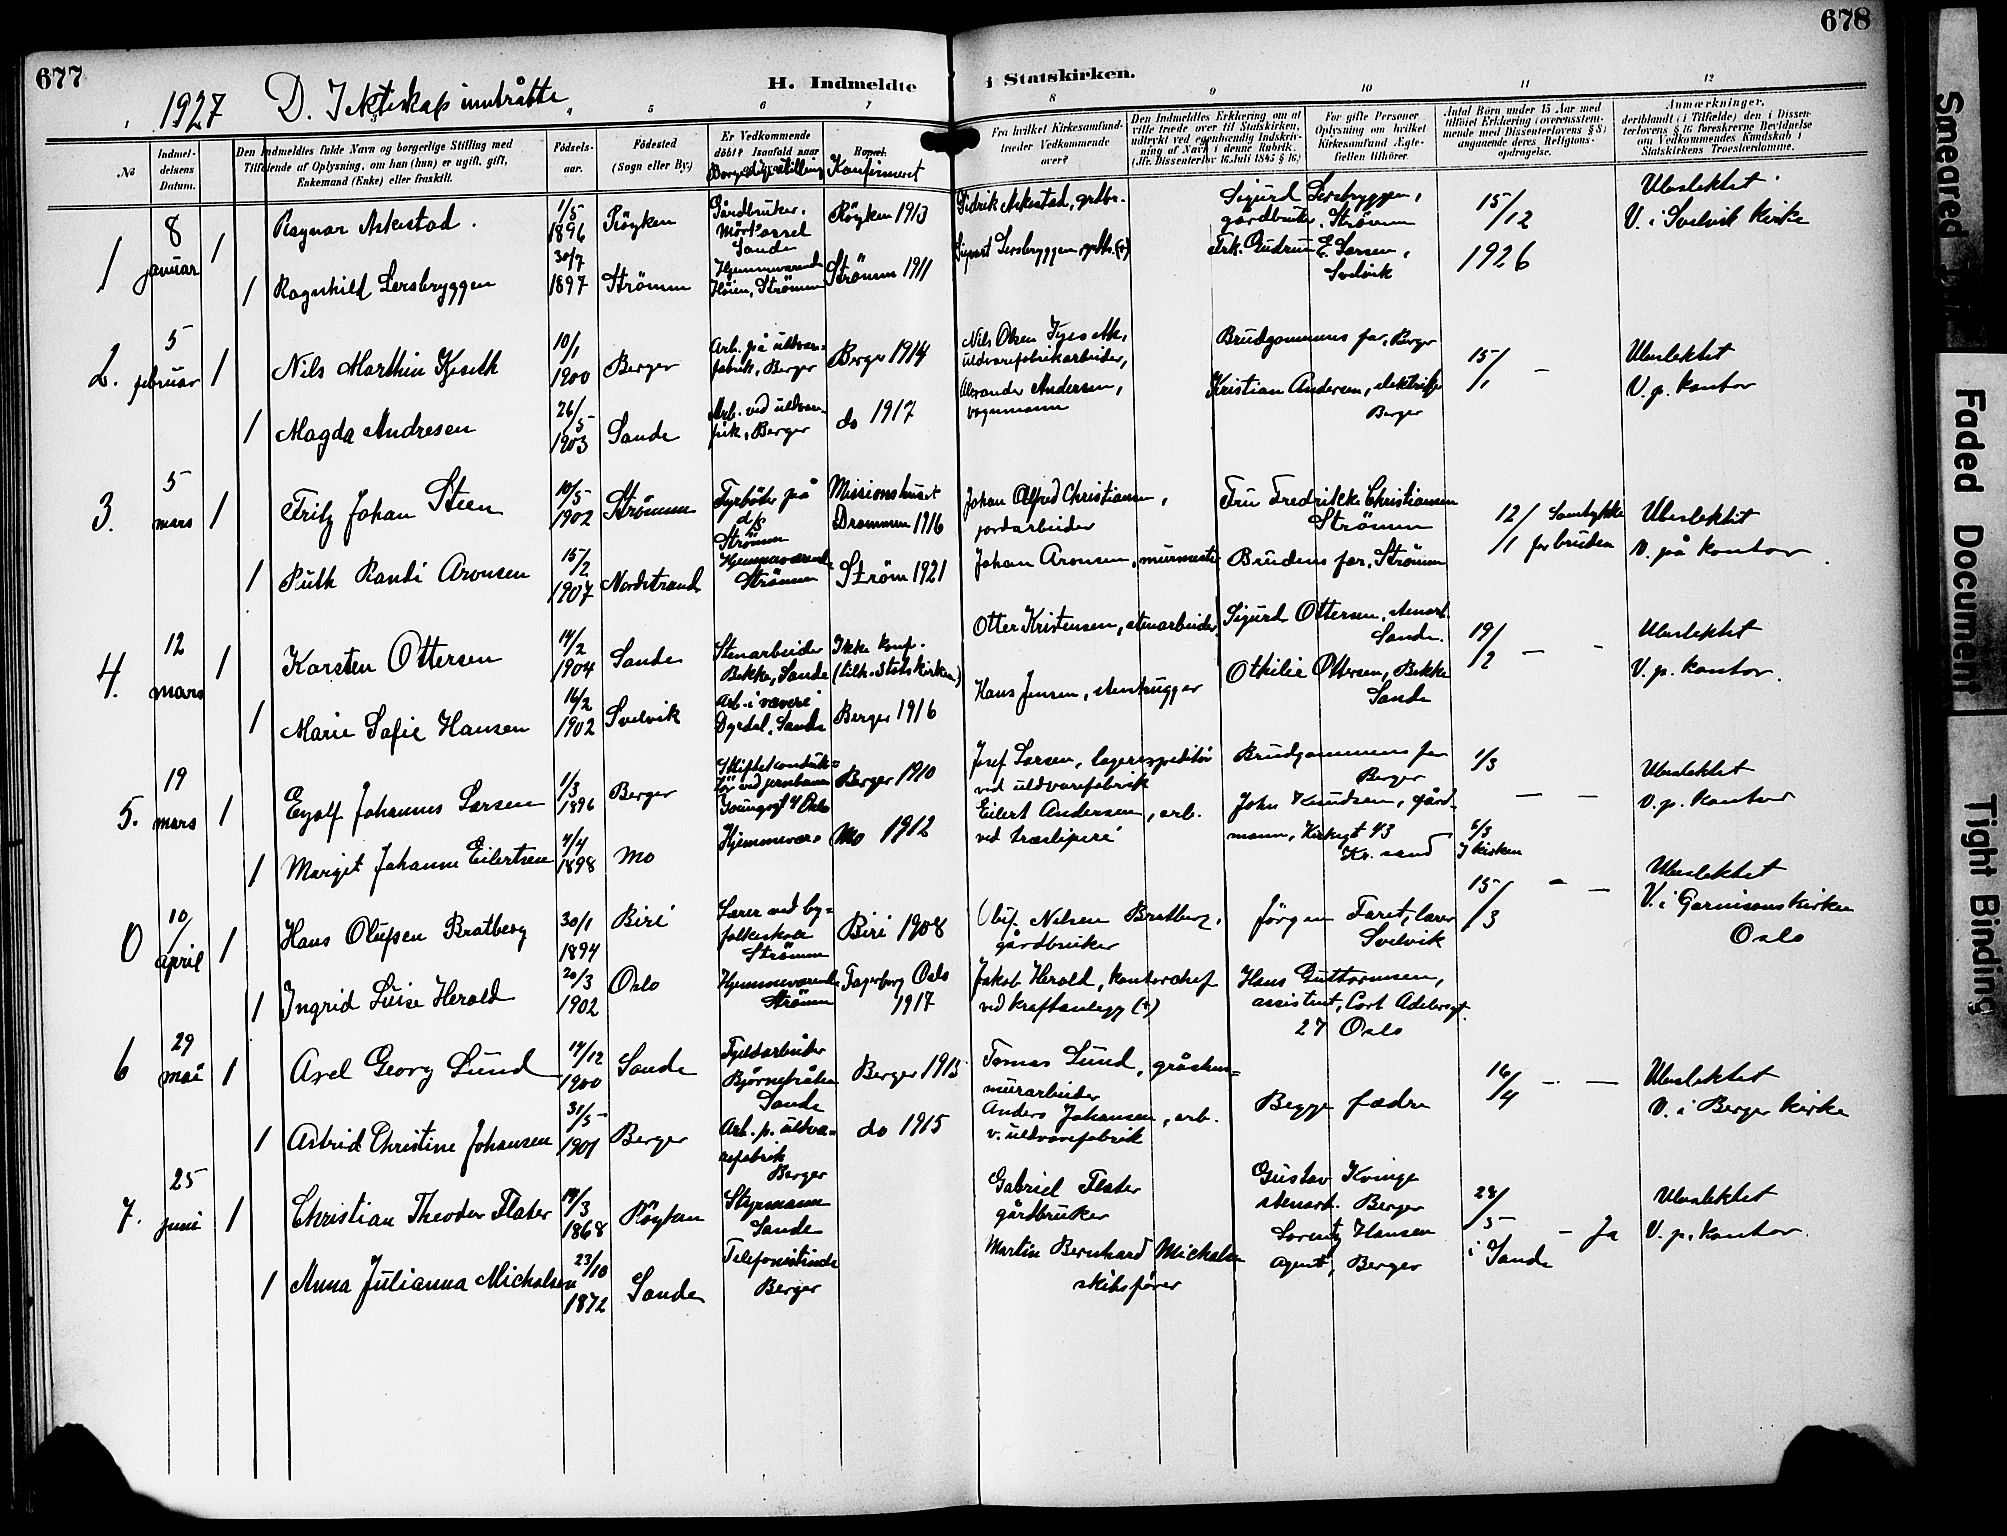 677
678
1927 D. I ekteskap inntrådte
H. Indmeldte i Statskirken.
5 6 7 8 9 10 11 12
No
Indmeldelsens Datum.
Den Indmeldtes fulde Navn og borgerlige Stilling med
Tilføiende af Oplysning, om han (hun) er ugift, gift,
Enkemand (Enke) eller fraskilt.
Fødsels-
aar.
Fødested
(Sogn eller By.)
Er Vedkommende
døbt? Isaafald naar
Borgerlig stilling
Konfirmeret
Fra hvilket Kirkesamfund
træder Vedkommende
over?
Den Indmeldtes Erklæring om at
ville træde over til Statskirken,
udtrykt ved egenhændig Indskriv-
ning af Navn i denne Rubrik.
(Jfr. Dissenterlov 16 Juli 1845 § 16.)
For gifte Personer
Oplysning om hvilket
Kirkesamfund Ægte-
fællen tilhører.
Antal Børn under 15 Aar med
tilføiet Erklæring i overensstem-
mende med Dissenterlovens § 8
angaaende deres Religions-
opdragelse.
Anmærkninger,
deriblandt (i Tilfælde) den i Dissen-
terlovens § 16 foreskrevne Bevidnelse
om Vedkommendes Kundskab i
Statskirkens Troeslærdomme.
1 8 januar 1 Ragnar Askestad. 1/5 1896 Röyken Gårdbruker, Sande Röyken 1913 Didrik Askestad, grdbr. Sigurd Lersbryggen, gardbruker, Strömm 15/12 Ubeslektet V. i Svelvik Kirke
1 Ragnhild Lersbryggen 30/7 1897 Strömm Hjemmeværende Höien, Strömm Strömm 1911 Sigvart Lersbryggen, grdb. (+) Frk. Gudrun E. Larsen, Svelvik 1926
2. 5 februar 1 Nils Marthin Kjeseth 10/1 1900 Berger Arb. på uldvarefabrik, Berger Berger 1914 Nils Olsen uldvarefabrikarbeider, Brudgommens far, Berger 15/1 - Ubeslektet V. p. kontor
1 Magda Andresen 26/5 1903 Sande Arb. ved Berger do 1917 Alexander Andersen, vognmann Kristian Andersen, Berger
3. 5 mars 1 Fritz Johan Steen 10/5 1902 Strömm Fyrböter på d/s Strömm Missionshuset Drammen 1916 Johan Alfred Christiansen, jordarbeider Fru Fredrikke Christiansen Strömm 12/1 Samtykke for bruden Ubeslektet V. på kontor
1 Ruth Randi Aronsen 15/2 1907 Nordstrand Hjemmeværende Strömm Ström 1921 Johan Aronsen, murmester Brudens far, Strömm
4. 12 mars 1 Karsten Ottersen 14/2 1904 Sande Stenarbeider Bekke, Sande Ikke konf. (tilh. Statskirken) Otter Kristensen, stenarbeider Sigurd Ottersen, stenarb. Sande. 19/2 - - Ubeslektet V. p. kontor.
1 Marie Sofie Hansen 16/2 1902 Svelvik Arb. i væveri Dyrdal, Sande Berger 1916 Hans Jensen, stenhugger Othilie Ottersen, Bekke Sande
5. 19 mars 1 Eyolf Johannes Larsen 1/3 1896 Berger Skiftekonduktör ved jernbanen Oslo Berger 1910 Josef Larsen, lagerexpeditör ved uldvarefabrik Brudgommens far Berger 1/3 - - Ubeslektet V. p. kontor
1 Margit Johanne Eilertsen 4/4 1898 Mo Hjemmevær. Mo 1912 Eilert Andersen, arb. ved træsliperi John Knudsen, gårdmann, Kirkegt 43 Kr. sand 6/3 I kirken
0 10/april 1 Hans Olufsen Bratberg 30/1 1894 Biri Lærer ved folkeskole Strömm Biri 1908 Oluf Nilsen Bratberg, gårdbruker Jörgen Faret, lærer Svelvik 15/3 - - Ubeslektet V. i Garnisonskirken Oslo
1 Ingrid Luise Herold 20/3 1902 Oslo Hjemmeværende Strömm Fagerborg Oslo 1917 Jakob Herold, kontorchef ved kraftanlegg (+) Hans Guttormsen, assistent, Cort Adelersgt. 27 Oslo
6 29 mai 1 Axel Georg Lund 14/12 1900 Sande Sande Berger 1915 Tomas Lund, gråstensmurarbeider Begge fædre 16/4 - - Ubeslektet V. i Berger Kirke
1 Astrid Christine Johansen 31/5 1901 Berger Arb. p. uldvarefabrik Berger do 1915 Anders Johansen, arb. v. uldvarefabrik
7. 25 juni 1 Christian Theodor Flater 19/3 1868 Röyken Styrmann Sande Gabriel Flater gårdbruker Gustav Kvinge stenarb. Berger 28/5 - Ja Ubeslektet V. p. kontor.
1 Anna Julianna Michalsen 23/10 1872 Sande Telefonistinde Berger Martin Bernhard Michalsen skibsförer Lorentz Hansen agent, Berger i Sande
Smeared
Faded Document
Tight Binding